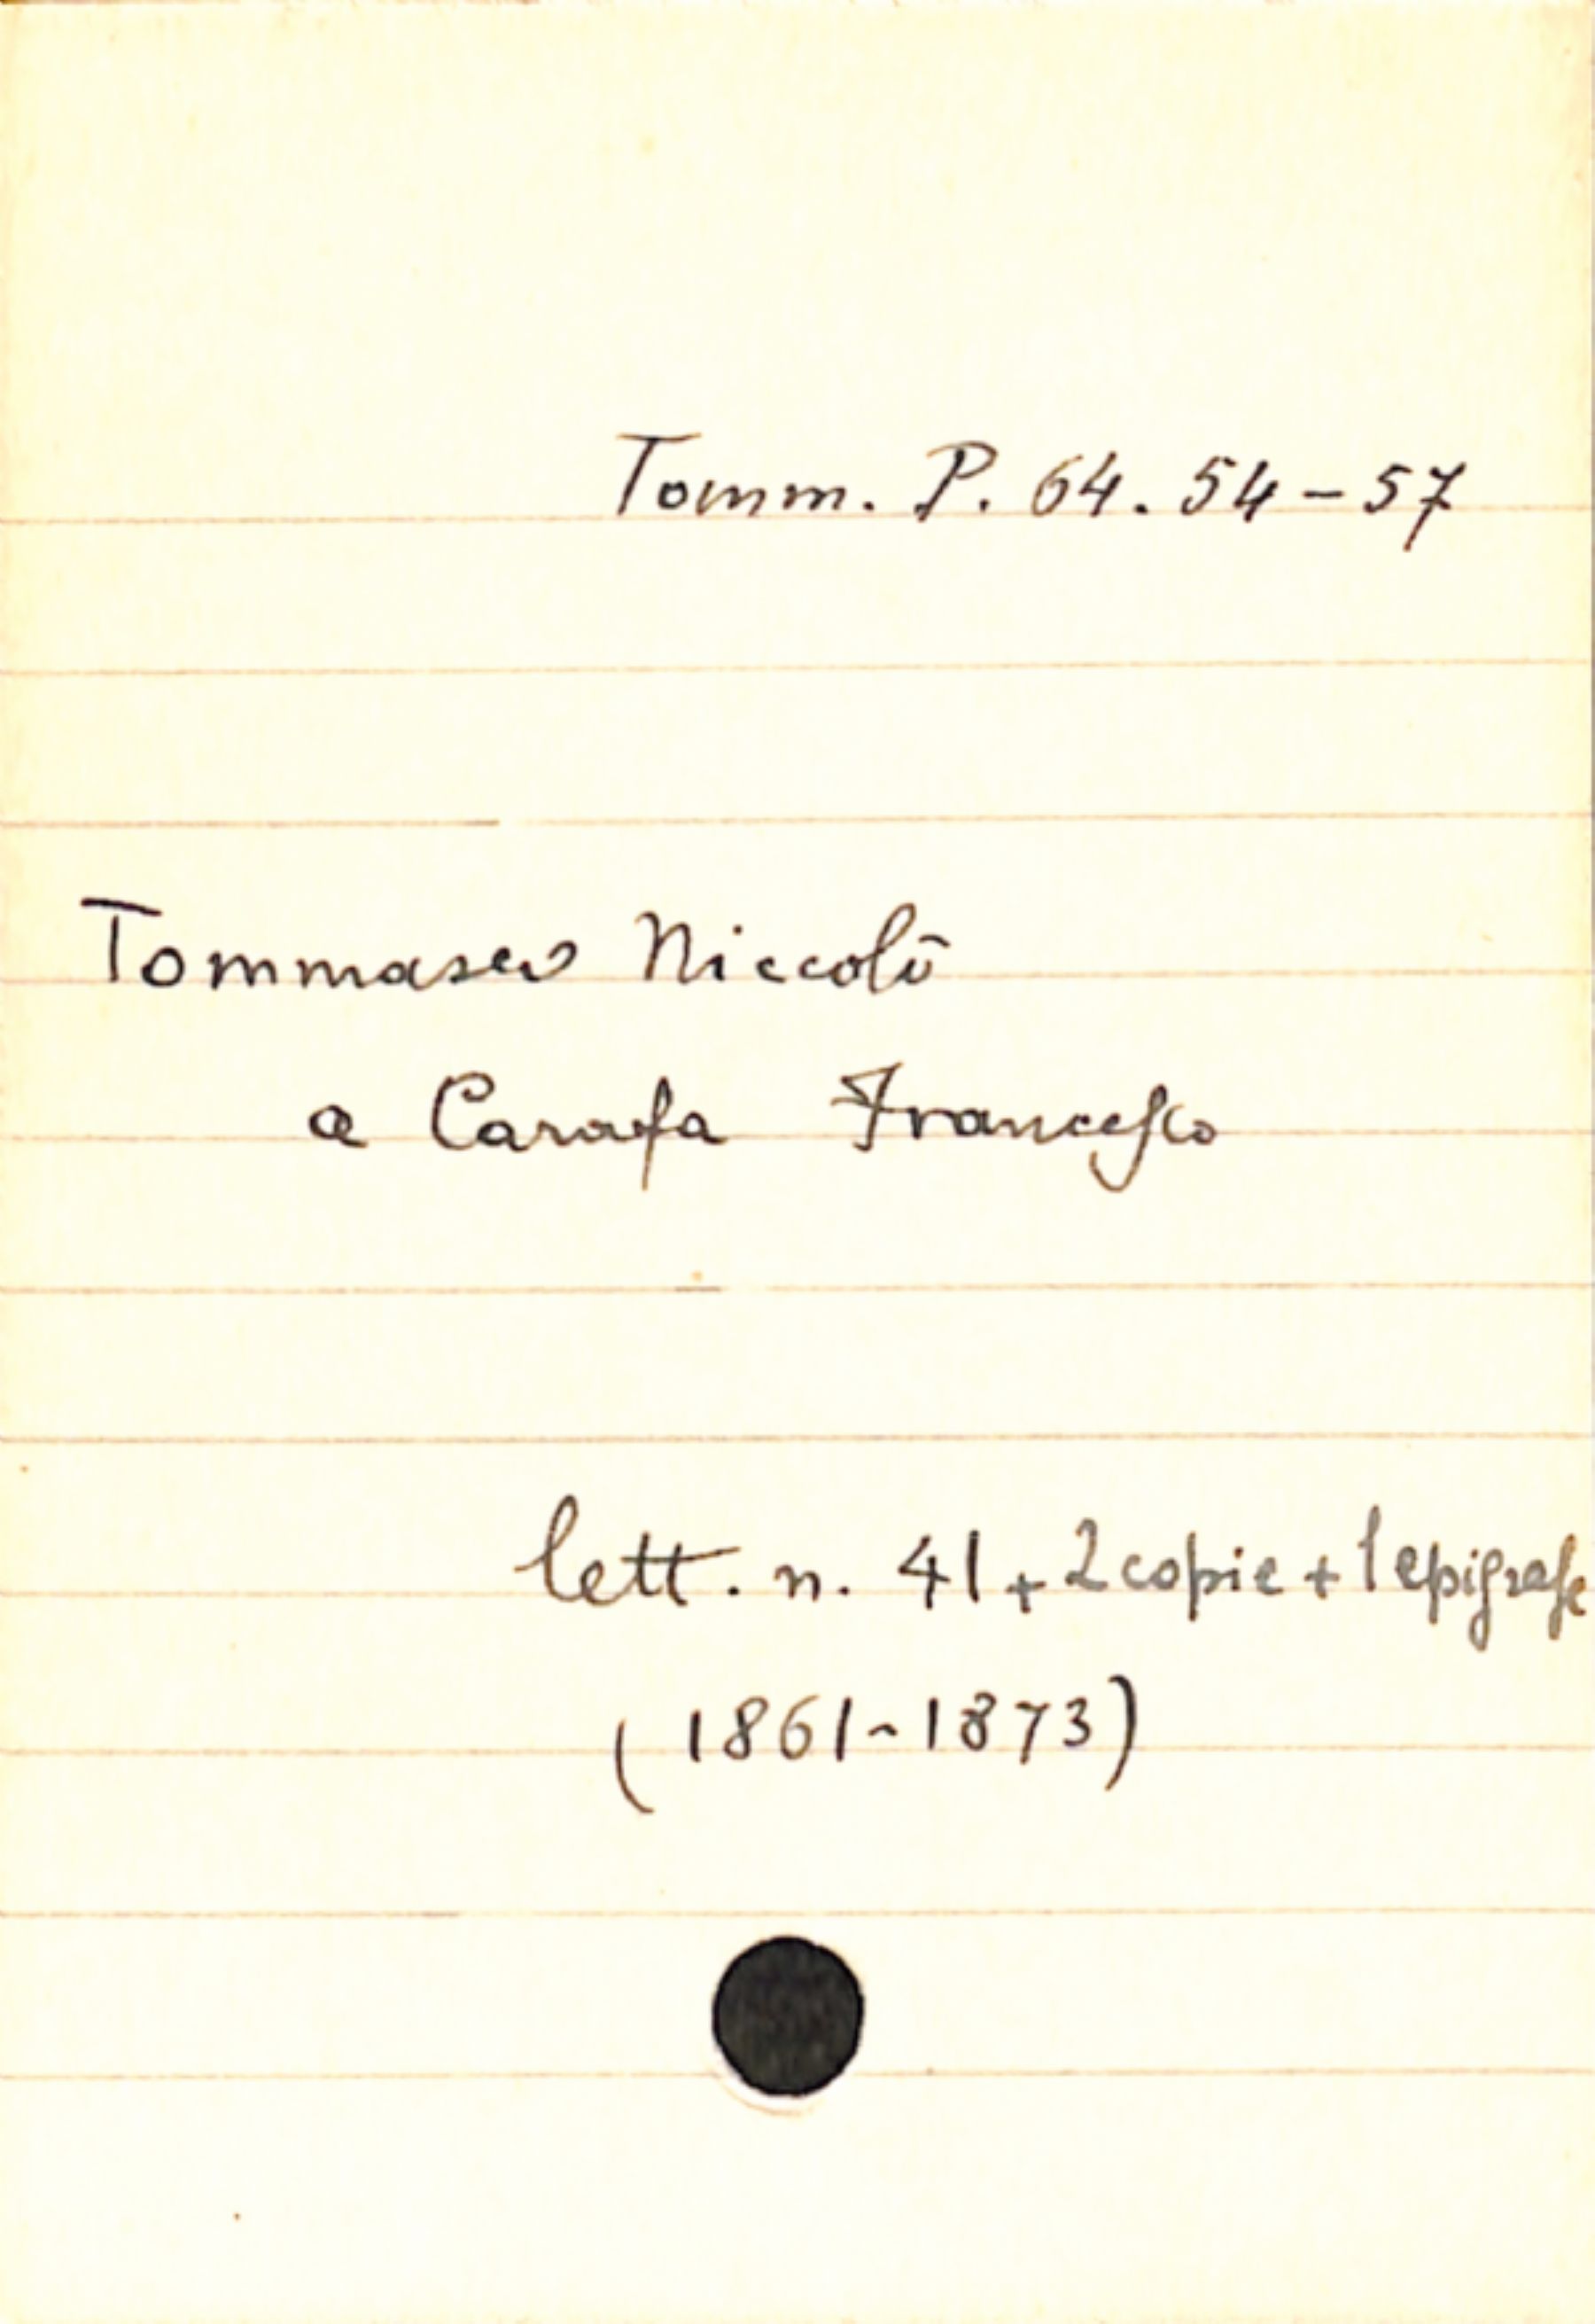 Tomm. P. 64. 54-57
Tommaseo Niccolò
a Carafa Francesco
lett. n. 41 + 2 copie + 1 epigrafe
(1861-1873)